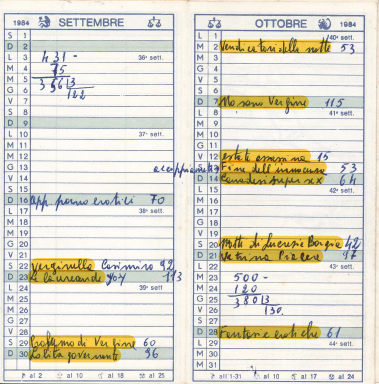 1984 SETTEMBRE
S 1
D 2
L 3 431 - 36ª sett.
M 4 75
M 5 356 13
G 6 122
V 7
S 8
D 9
L 10 37ª sett.
M 11
M 12
G 13
V 14
S 15
D 16 app. porno erotici 70
L 17 38ª sett.
M 18
M 19
G 20
V 21
S 22 Verginella Casimiro 92
D 23 Le laureande 113
L 24 39ª sett.
M 25
M 26
G 27
V 28
S 29 Problema di Vergine 60
D 30 Lolita 96
al 2 al 10 al 18 al 25
OTTOBRE 1984
L 1 40ª sett.
M 2 Venditori della notte 53
M 3
G 4
V 5
S 6
D 7 Vergine 115
L 8 41ª sett.
M 9
M 10
G 11
V 12 estate assassina 15
S 13 Fine dell'innocenza 53
D 14 Canadesi super xx 64
L 15 42ª sett.
M 16
M 17
G 18
V 19
S 20 Notti di Lucrezia Borgia 42
D 21 Piacere 97
L 22 43ª sett.
M 23 500 -
M 24 120
G 25 380 13
V 26 130.
S 27
D 28 Fantasie erotiche 61
L 29 44ª sett.
M 30
M 31
al 1-31 al 10 al 17 al 24